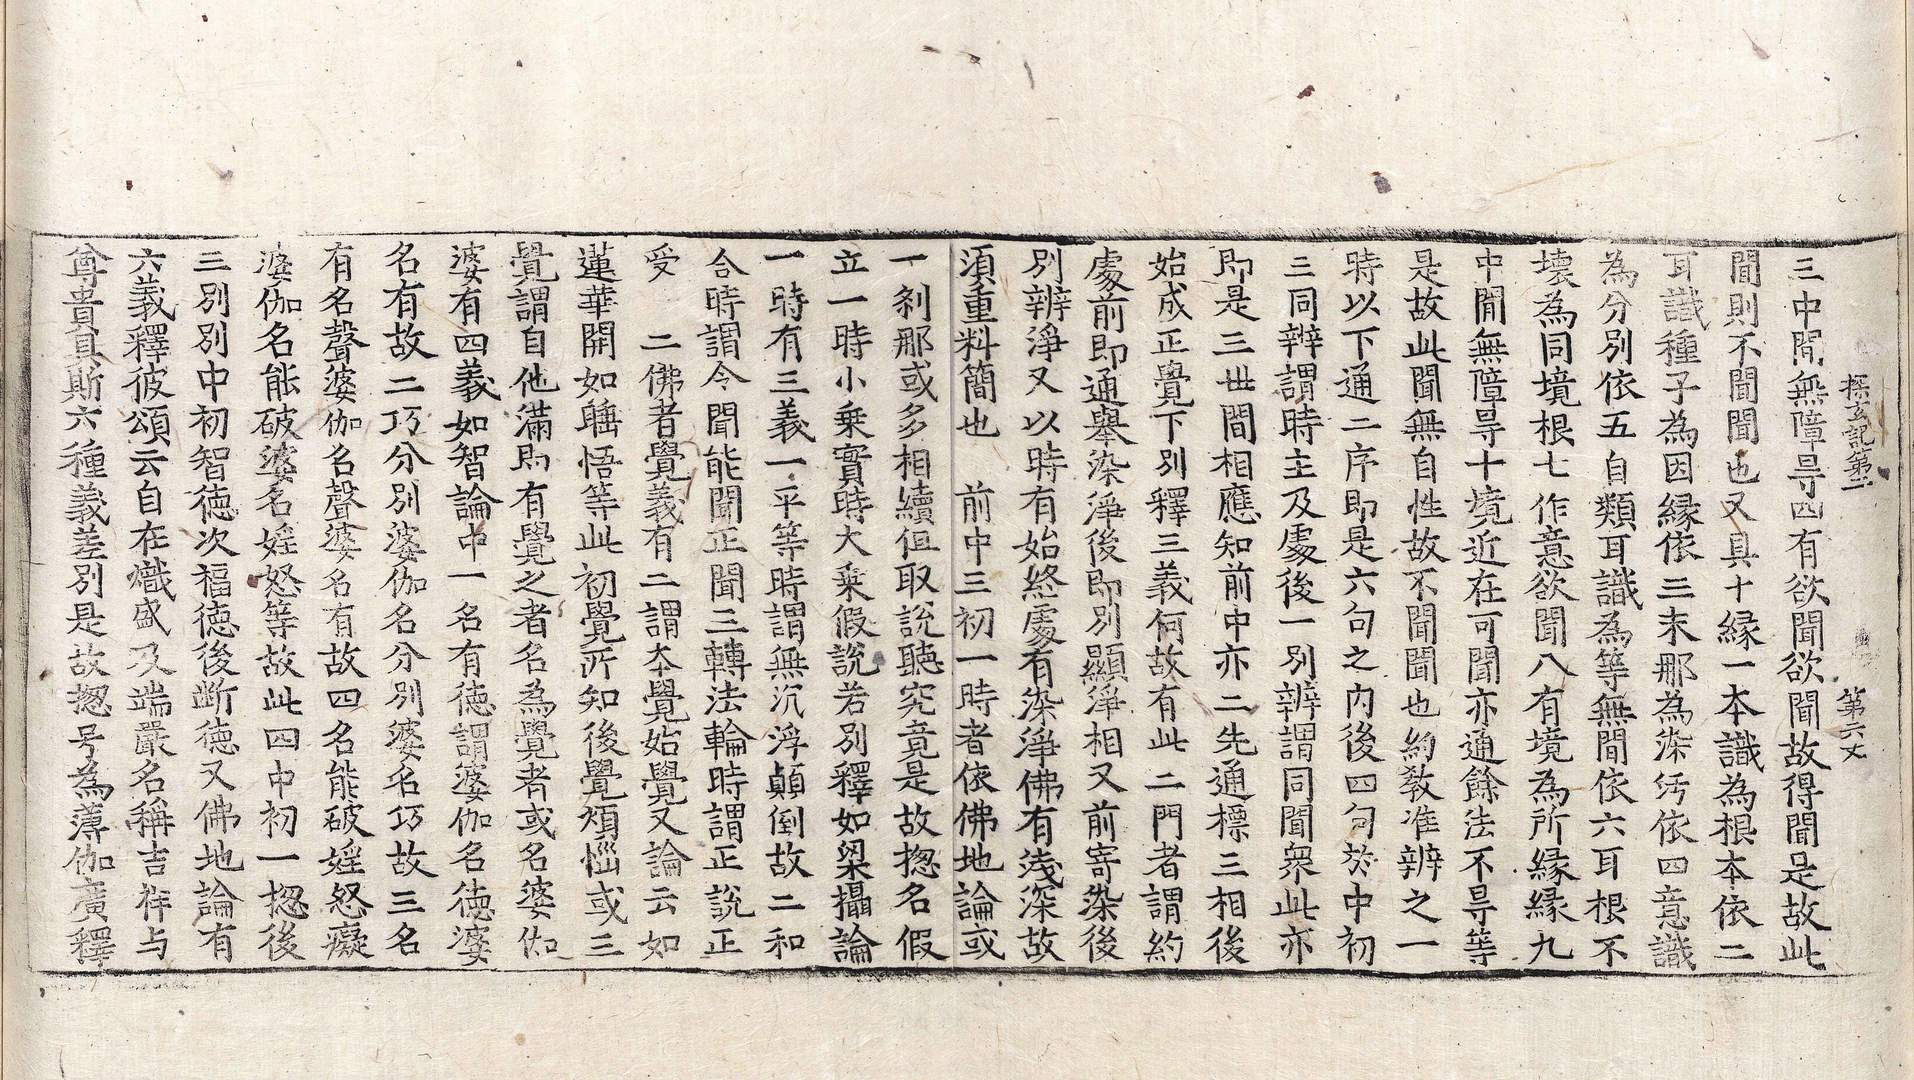 探玄記第二　第六丈
三中間無障㝵四有欲聞欲聞故得聞是故此
聞則不聞聞也又具十縁一本識為根本依二
耳識種子為因縁依三末那為染汚依四意識
為分別依五自類耳識為等無間依六耳根不
壊為同境根七作意欲聞八有境為所縁縁九
中間無障㝵十境近在可聞亦通餘法不㝵等
是故此聞無自性故不聞聞也約敎准辨之一
時以下通二序即是六句之内後四句於中初
三同辨謂時主及處後一別辨謂同聞衆此亦
即是三世間相應知前中亦二先通標三相後
始成正覺下別釋三義何故有此二門者謂約
處前即通舉染淨後即別顯淨相又前寄染後
別辨淨又以時有始終處有染淨佛有淺深故
須重料簡也　前中三初一時者依佛地論或
一刹那或多相續但取說聽究竟是故揔名假
立一時小乗實時大乗假說若別釋如梁攝論
一時有三義一平等時謂無沉浮顛倒故二和
合時謂令聞能聞正聞三轉法輪時謂正說正
受　二佛者覺義有二謂本覺始覺又論云如
蓮華開如睡悟等此初覺所知後覺煩惱或三
覺謂自他滿即有覺之者名為覺者或名婆伽
婆有四義如智論中一名有徳謂婆伽名徳婆
名有故二巧分別婆伽名分別婆名巧故三名
有名聲婆伽名聲婆名有故四名能破婬怒癡
婆伽名能破婆名婬怒等故此四中初一揔後
三別別中初智徳次福徳後斷徳又佛地論有
六義釋彼頌云自在熾盛及端嚴名稱吉祥与
尊貴具斯六種義差別是故揔号為薄伽廣釋